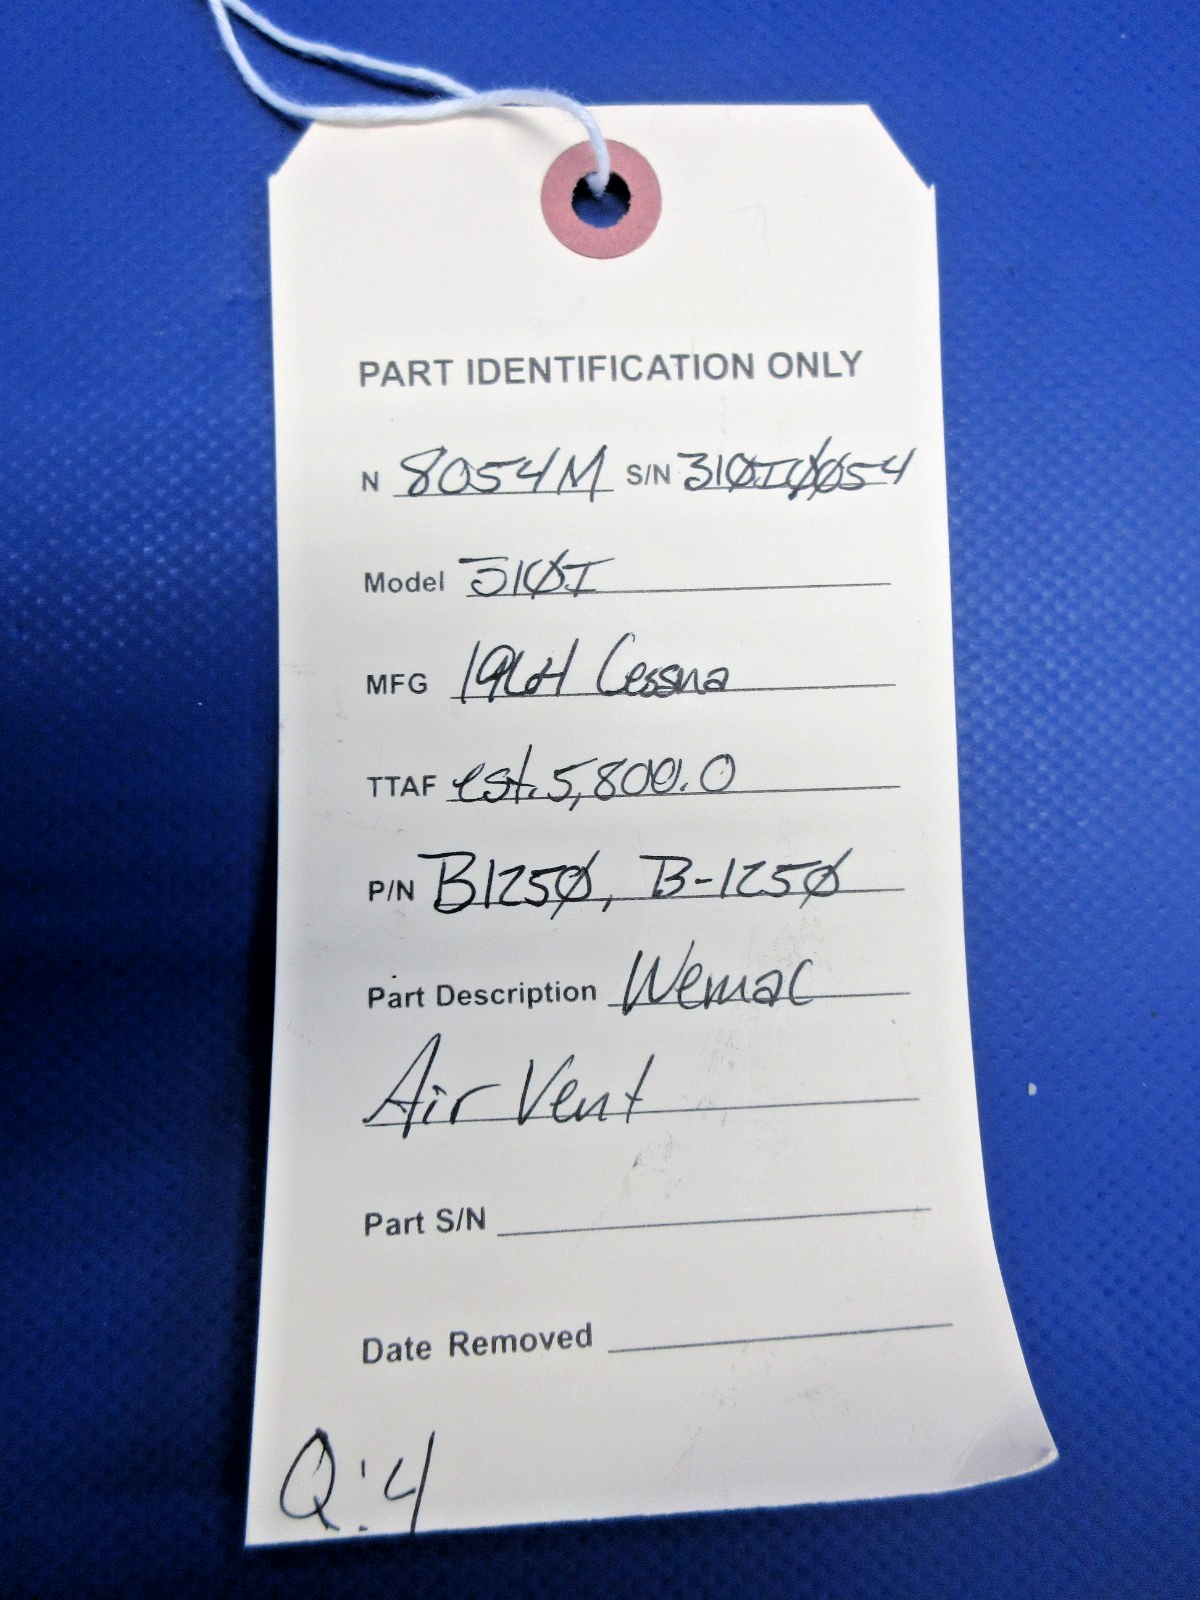 PART IDENTIFICATION ONLY
N 8054M S/N 310I0054
Model 310I
MFG 1964 Cessna
TTAF est. 5,800.0
P/N B1250, B-1250
Part Description Wemac
Air Vent
Part S/N
Date Removed
Q:4